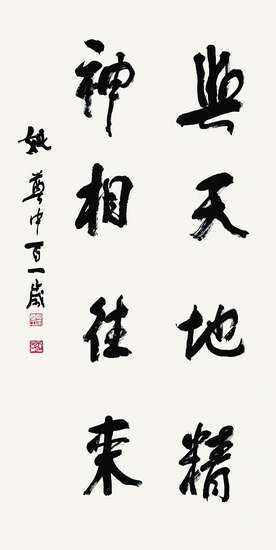 與天地精
神相往来
姚奠中百一歲